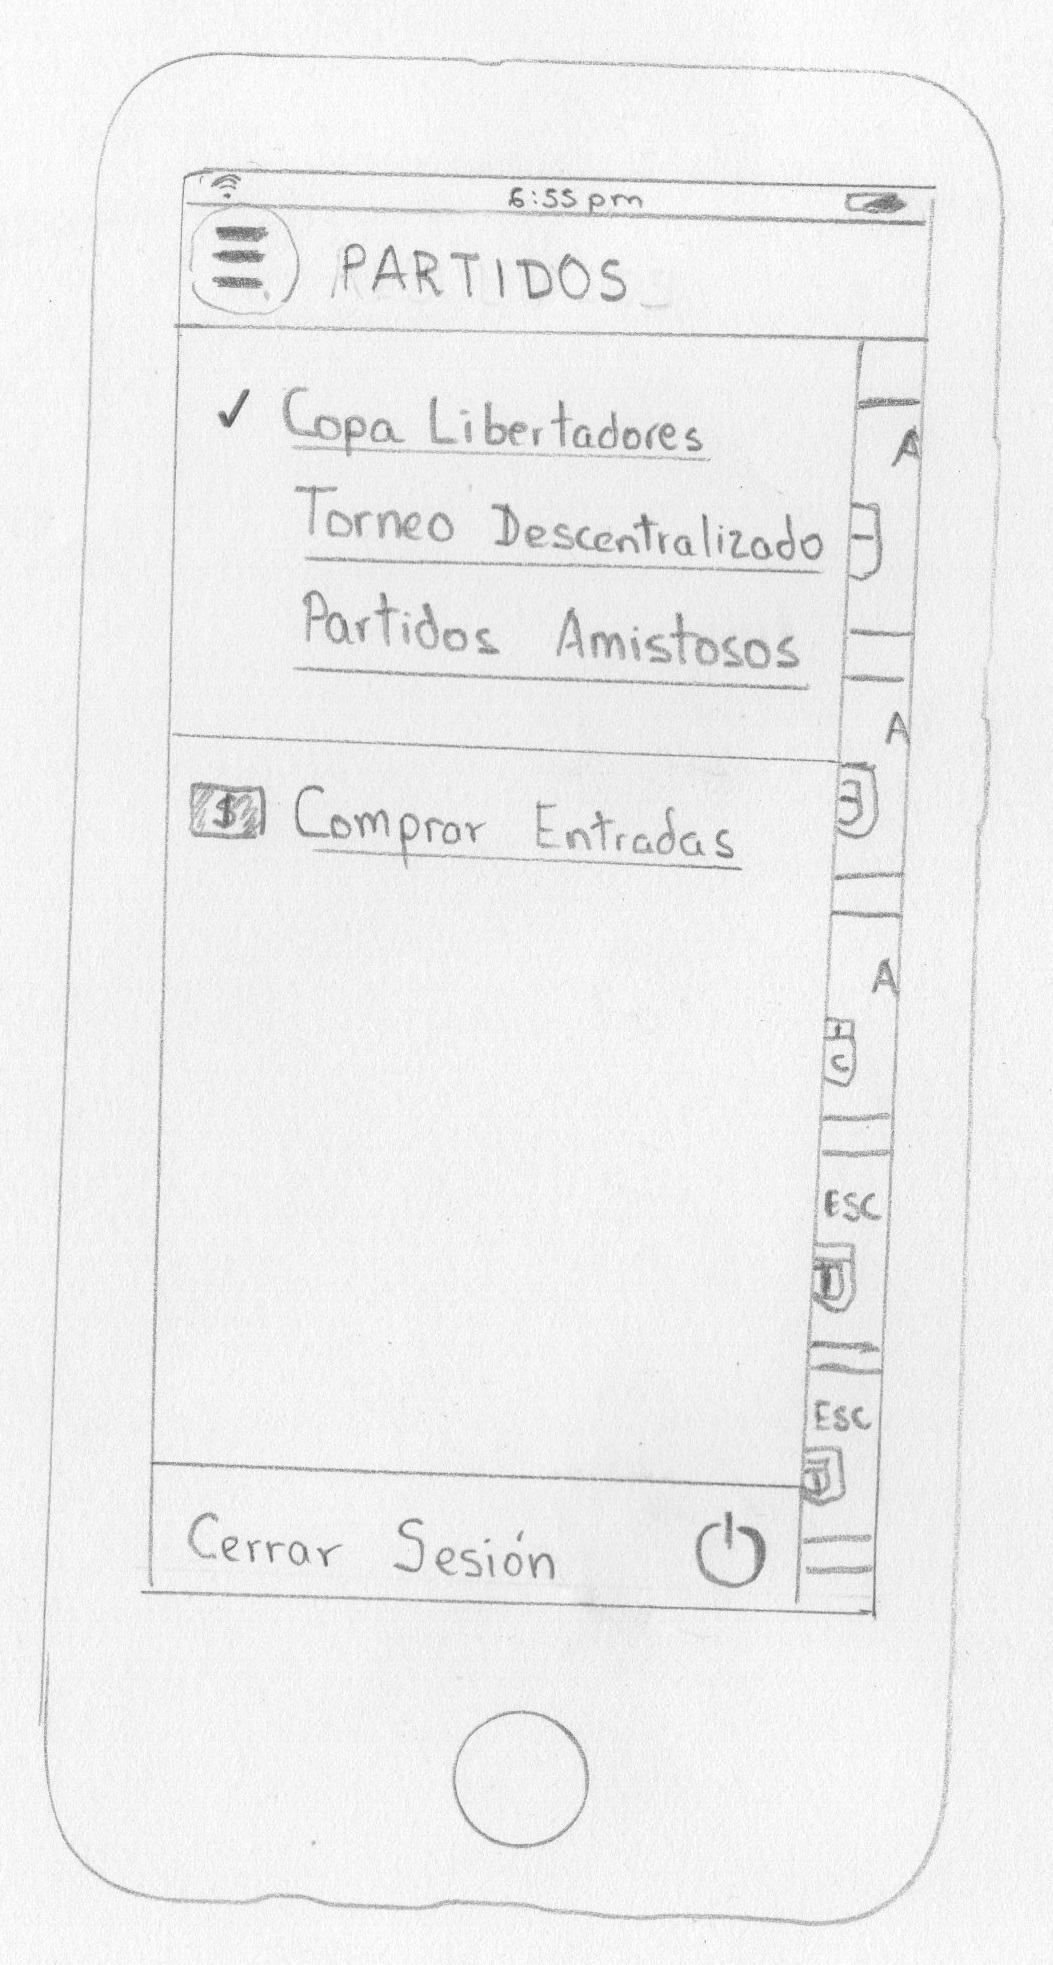 6:55 pm
PARTIDOS
✓ Copa Libertadores
A
Torneo Descentralizado
Partidos Amistosos
A
$ Comprar Entradas
A
C
ESC
ESC
Cerrar Sesión